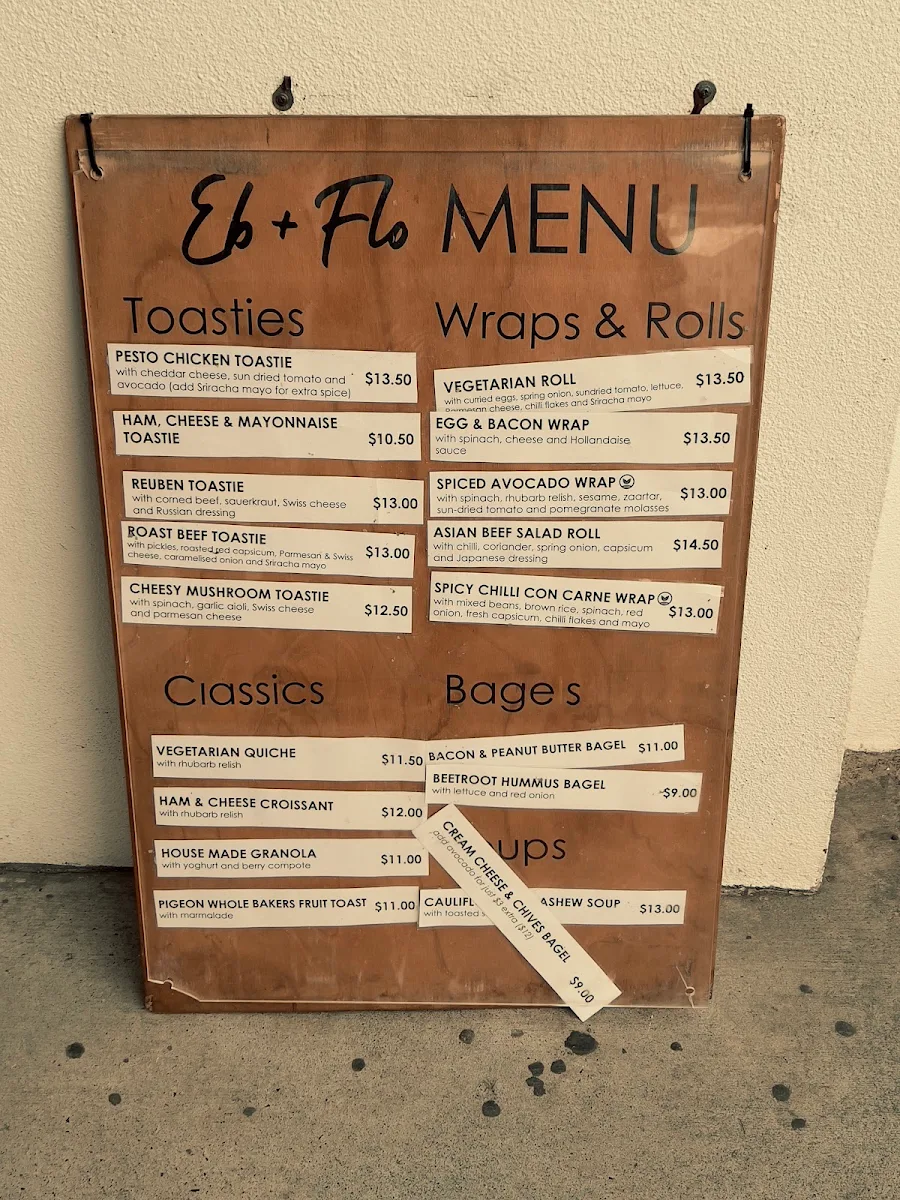 Eb + Flo MENU
Toasties
PESTO CHICKEN TOASTIE
with cheddar cheese, sun dried tomato and
avocado (add Sriracha mayo for extra spice)
$13.50
HAM, CHEESE & MAYONNAISE
TOASTIE
$10.50
REUBEN TOASTIE
with corned beef, sauerkraut, Swiss cheese
and Russian dressing
$13.00
ROAST BEEF TOASTIE
with pickles, roasted red capsicum, Parmesan & Swiss
cheese, caramelised onion and Sriracha mayo
$13.00
CHEESY MUSHROOM TOASTIE
with spinach, garlic aioli, Swiss cheese
and parmesan cheese
$12.50
Wraps & Rolls
VEGETARIAN ROLL
with curried eggs, spring onion, sundried tomato, lettuce,
Parmesan cheese, chilli flakes and Sriracha mayo
$13.50
EGG & BACON WRAP
with spinach, cheese and Hollandaise
sauce
$13.50
SPICED AVOCADO WRAP
with spinach, rhubarb relish, sesame, zaartar,
sun-dried tomato and pomegranate molasses
$13.00
ASIAN BEEF SALAD ROLL
with chilli, coriander, spring onion, capsicum
and Japanese dressing
$14.50
SPICY CHILLI CON CARNE WRAP
with mixed beans, brown rice, spinach, red
onion, fresh capsicum, chilli flakes and mayo
$13.00
Classics
VEGETARIAN QUICHE
with rhubarb relish
$11.50
HAM & CHEESE CROISSANT
with rhubarb relish
$12.00
HOUSE MADE GRANOLA
with yoghurt and berry compote
$11.00
PIGEON WHOLE BAKERS FRUIT TOAST
with marmalade
$11.00
Bage s
BACON & PEANUT BUTTER BAGEL $11.00
BEETROOT HUMMUS BAGEL
with lettuce and red onion
$9.00
CREAM CHEESE & CHIVES BAGEL
add avocado for just $3 extra ($12)
$9.00
ups
CAULIFL ASHEW SOUP
with toasted
$13.00